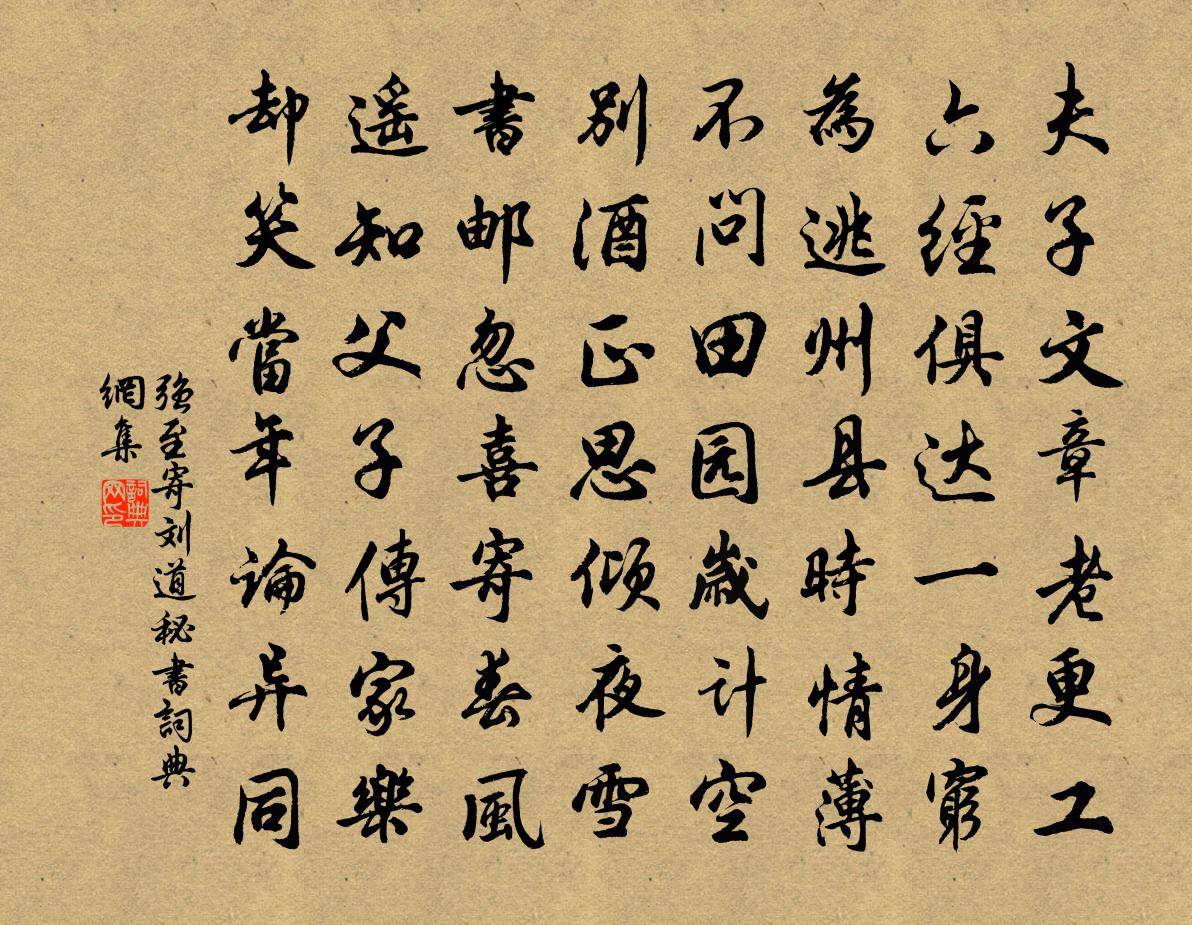 夫子文章老更工
六經俱达一身窮
為逃州县時情薄
不问田园歲计空
别酒正思倾夜雪
書邮忽喜寄春風
遥知父子傳家樂
却笑當年論异同
强至寄刘道秘書詞典
網集
詞典
网印